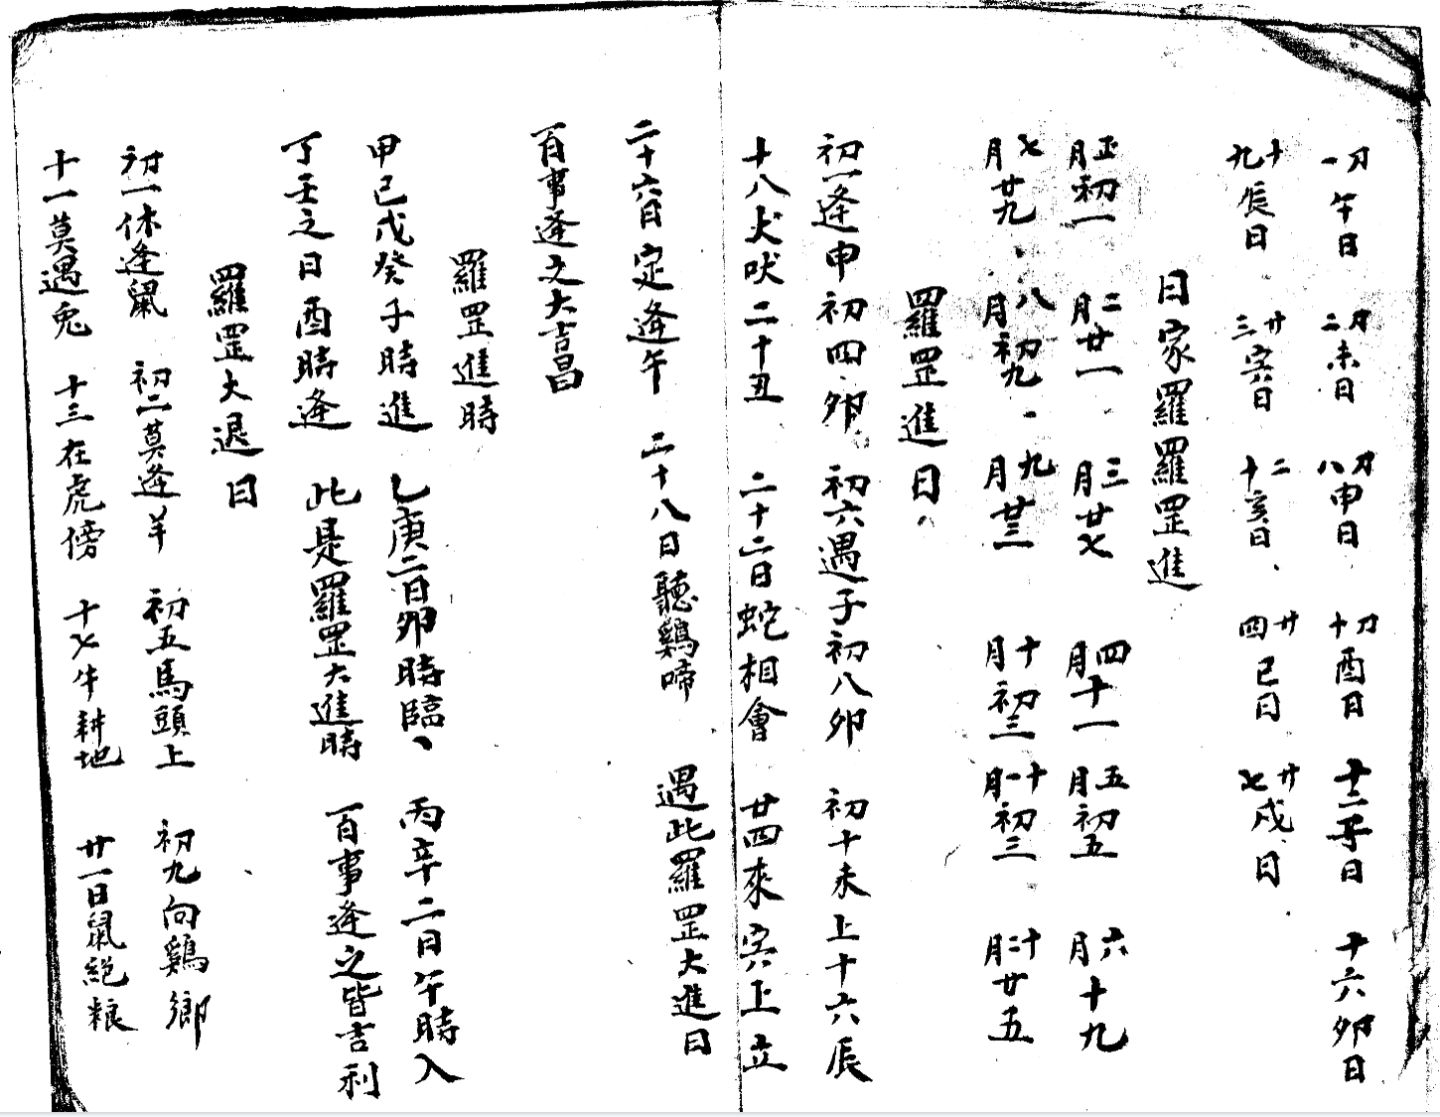 初一午日 初二未日 初八申日 初十酉日 十二子日 十六卯日
十九辰日 廿三寅日 二十亥日 廿四巳日 廿七戌日
日家羅羅罡進
正月初一 二月廿一 三月廿七 四月十一 五月初五 六月十九
七月廿九 八月初九 九月廿三 十月初三 十一月初三 十二月廿五
羅罡進日
初一逢申初四卯 初六遇子初八卯 初十未上十六辰
十八犬吠二十丑 二十二日蛇相會 廿四來寅上立
二十六日定逢午 二十八日聽鷄啼 遇此羅罡大進日
百事逢之大吉昌
羅罡進時
甲己戊癸子時進 乙庚二日卯時臨 丙辛二日午時入
丁壬之日酉時逢 此是羅罡大進時 百事逢之皆吉利
羅罡大退日
初一休逢鼠 初二莫逢羊 初五馬頭上 初九向鷄鄉
十一莫遇兎 十三在虎傍 十七牛耕地 廿一日鼠絕粮